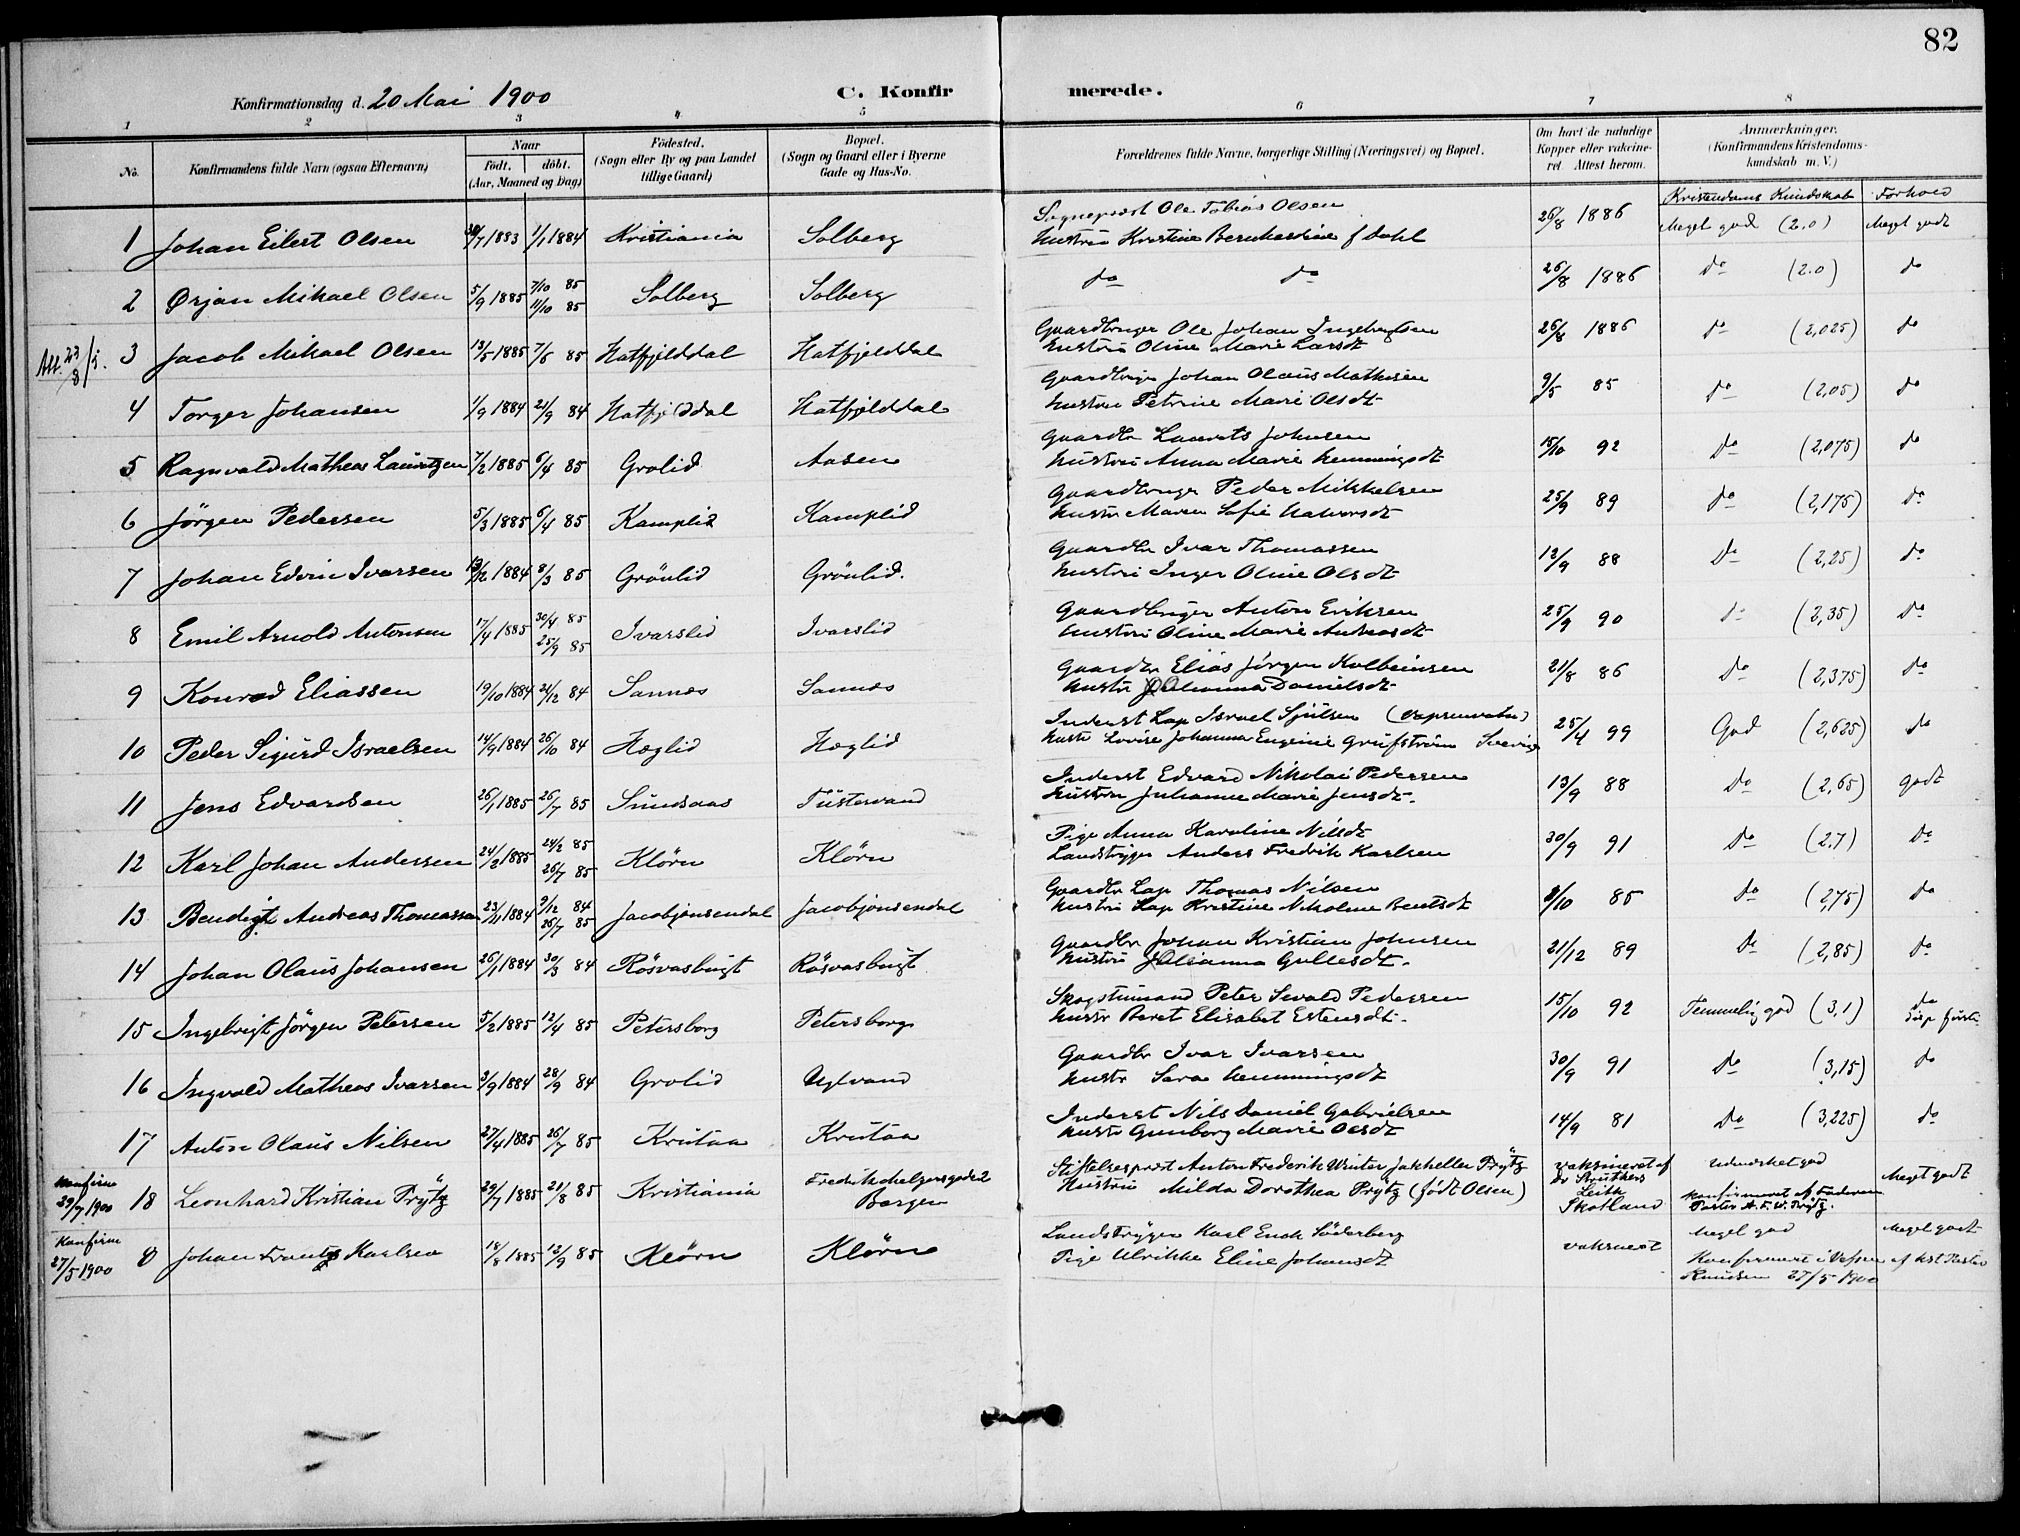 82
Konfirmationsdag d. 20 Mai 1900
C. Konfir merede.
1 2 3 4 5 6 7 8
No.
Konfirmandens fulde Navn (ogsaa Efternavn)
Naar
født. døbt.
(Aar, Maaned og Dag)
Fødested.
(Sogn eller By og paa Landet
tillige Gaard)
Bopæl.
(Sogn og Gaard eller i Byerne
Gade og Hus-No.
Forældrenes fulde Navne, borgerlige Stilling (Næringsvei) og Bopæl.
Om havt de naturlige
Kopper eller vakcine-
ret. Attest herom.
Anmærkninger.
(Konfirmandens Kristendoms-
kundskab m. V.)
Kristendoms Kundskab Forhold
1 Johan Eilert Olsen 30/7 1883 1/1 1884 Kristiania Solberg
Sognepræst Ole Tobias Olsen
Hustru Kristine Bernhardine f Dahl
26/8 1886 Meget god (2.0) Meget godt
2 Ørjan Mikael Olsen 5/9 1885 7/10 85 11/10 85 Solberg Solberg
do do 26/8 1886 do (2.0) do
3 Jacob Mikael Olsen 13/5 1885 7/6 85 Hatfjelddal Hatfjelddal
Gaardbruger Ole Johan Ingebrigtsen
Hustru Oline Marie Larsdt
26/8 1886 do (2,025) do
4 Torger Johansen 1/9 1884 21/9 84 Hatfjelddal Hatfjelddal
Gaardbruger Johan Olaus Mathisen
Hustru Petrine Marie Olsdt
9/5 85 do (2,05) do
5 Ragnvald Matheas Lauritzen 7/2 1885 6/4 85 Grolid Aasen
Gaardbr Laurits Johnsen
Hustru Anna Marie Hemmingsdt
15/10 92 Do (2,075) do
6 Jörgen Pedersen 5/3 1885 6/4 85 Kamplid Kamplid
Gaardbruger Peder Mikkelsen
Hustr Maren Sofie Halvorsdt
25/9 89 do (2,175) do
7 Johan Edvin Ivarsen 1884 8/3 85 Grönlid Grönlid.
Gaardbr Ivar Thomassen
Hustru Inger Oline Olsdt
12/9 88 Do (2,25) do
8 Emil Arnold Antonsen 17/4 1885 30/4 85 25/9 85 Ivarslid Ivarslid
Gaardbruger Anton Eriksen
Hustru Oline Marie Andreasdt
25/9 90 do (2,35) Do
9 Konrad Eliassen 19/10 1884 21/12 84 Sannæs Sannæs
Gaardbr Elias Jørgen Kolbeinsen
Hustr Johanna Danielsdt
21/8 86 Do (2,375) do
10 Peder Sigurd Israelsen 14/9 1884 26/10 84 Hæglid Hæglid
Inderst Lap Israel Sjulsen
Hustr Lovise Johanna Eugenie Sverige
25/4 99 God (2,625) do
11 Jens Edvardsen 26/1 1885 26/7 85 Sundsaas Tustervand
Inderst Edvard Nikolai Pedersen
Hustru Julianne Marie Jensdt.
13/9 88 Do (2,65) godt
12 Karl Johan Andersen 24/2 1885 24/2 85 26/7 85 Klörn Klörn
Pige Anna Karoline Nilsdt
Landstryger Anders Fredrik Karlsen
30/9 91 Do (2.7) Do
13 Bendigt Andreas Thomassen 23/11 1884 9/12 84 26/7 85 Jacobjonsendal Jacobjonsendal
Gaardbr Lap Thomas Nilsen
Hustru Lap Kristine Nikoline Bentsdt
8/10 85 do (2,75) do
14 Johan Olaus Johansen 26/1 1884 30/3 84 Rösvasbugt Rösvasbugt
Gaardbr Johan Kristian Johnsen
Hustru Johanna Gullesdt.
21/12 89 do (2,85) do
15 Ingebrigt Jörgen Petersen 5/2 1885 12/4 85 Petersborg Petersborg
Skogstumand Peter Sevald Pedersen
Hustr Beret Elisabet Estensdt.
15/10 92 Temmelig god (3,1) do
16 Ingvald Matheas Ivarsen 3/9 1884 28/9 84 Grolid Uglvand
Gaardbr Ivar Ivarsen
Hustr Sara Hemmingsdt
30/9 91 Do (3,15) do
17 Anton Olaus Nilsen 27/4 1885 26/7 85 Krutaa Krutaa
Inderst Nils Daniel Gabrielsen
Hustr Gunborg Marie Olsdt
14/9 81 Do (3,225) do
Konfirm
29/7 1900 18 Leonhard Kristian Prytz 29/7 1885 21/8 85 Kristiania Bergen
Stiftelsesprest Anton Frederik Winter Jakhelln Prytz
Hustru Milda Dorothea Prytz (født Olsen)
vaksineret af Dr Struthers Leith Skotland
Udmerket god
Konfirmeret af Faderen
Pastor A. F. W. Prytz.
Meget godt
Konfirm
27/5 1900 Johan Frantz Karlsen 18/8 1885 13/9 85 Klörn Klörn
Landstryger Karl Söderberg
Pige Ulrikke Eline Johansdt
vaksinert
Meget god Meget godt
Konfirmeret i Vefsen af
Knudsen 27/5 1900